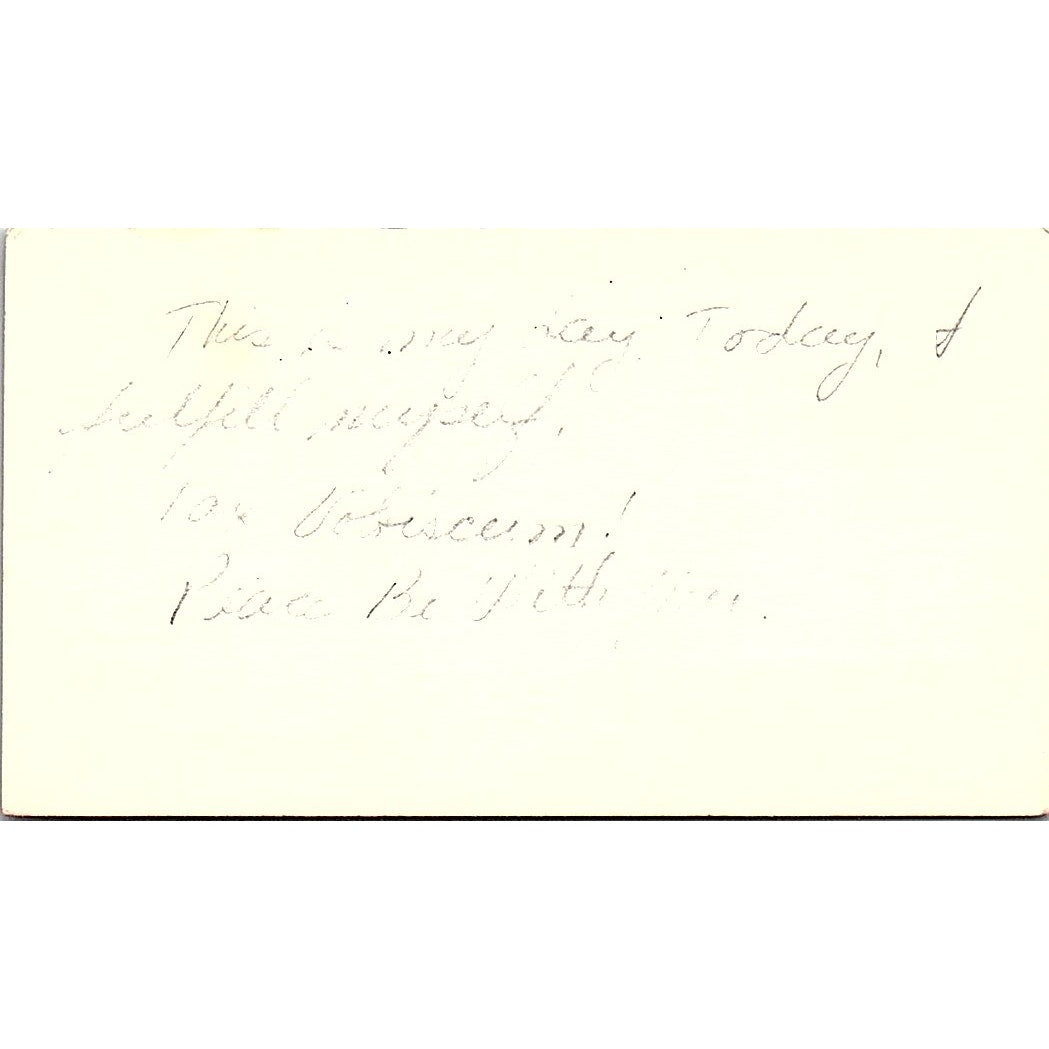 This is my day. Today, I
fulfill myself.
Pax Vobiscum!
Peace Be With You.